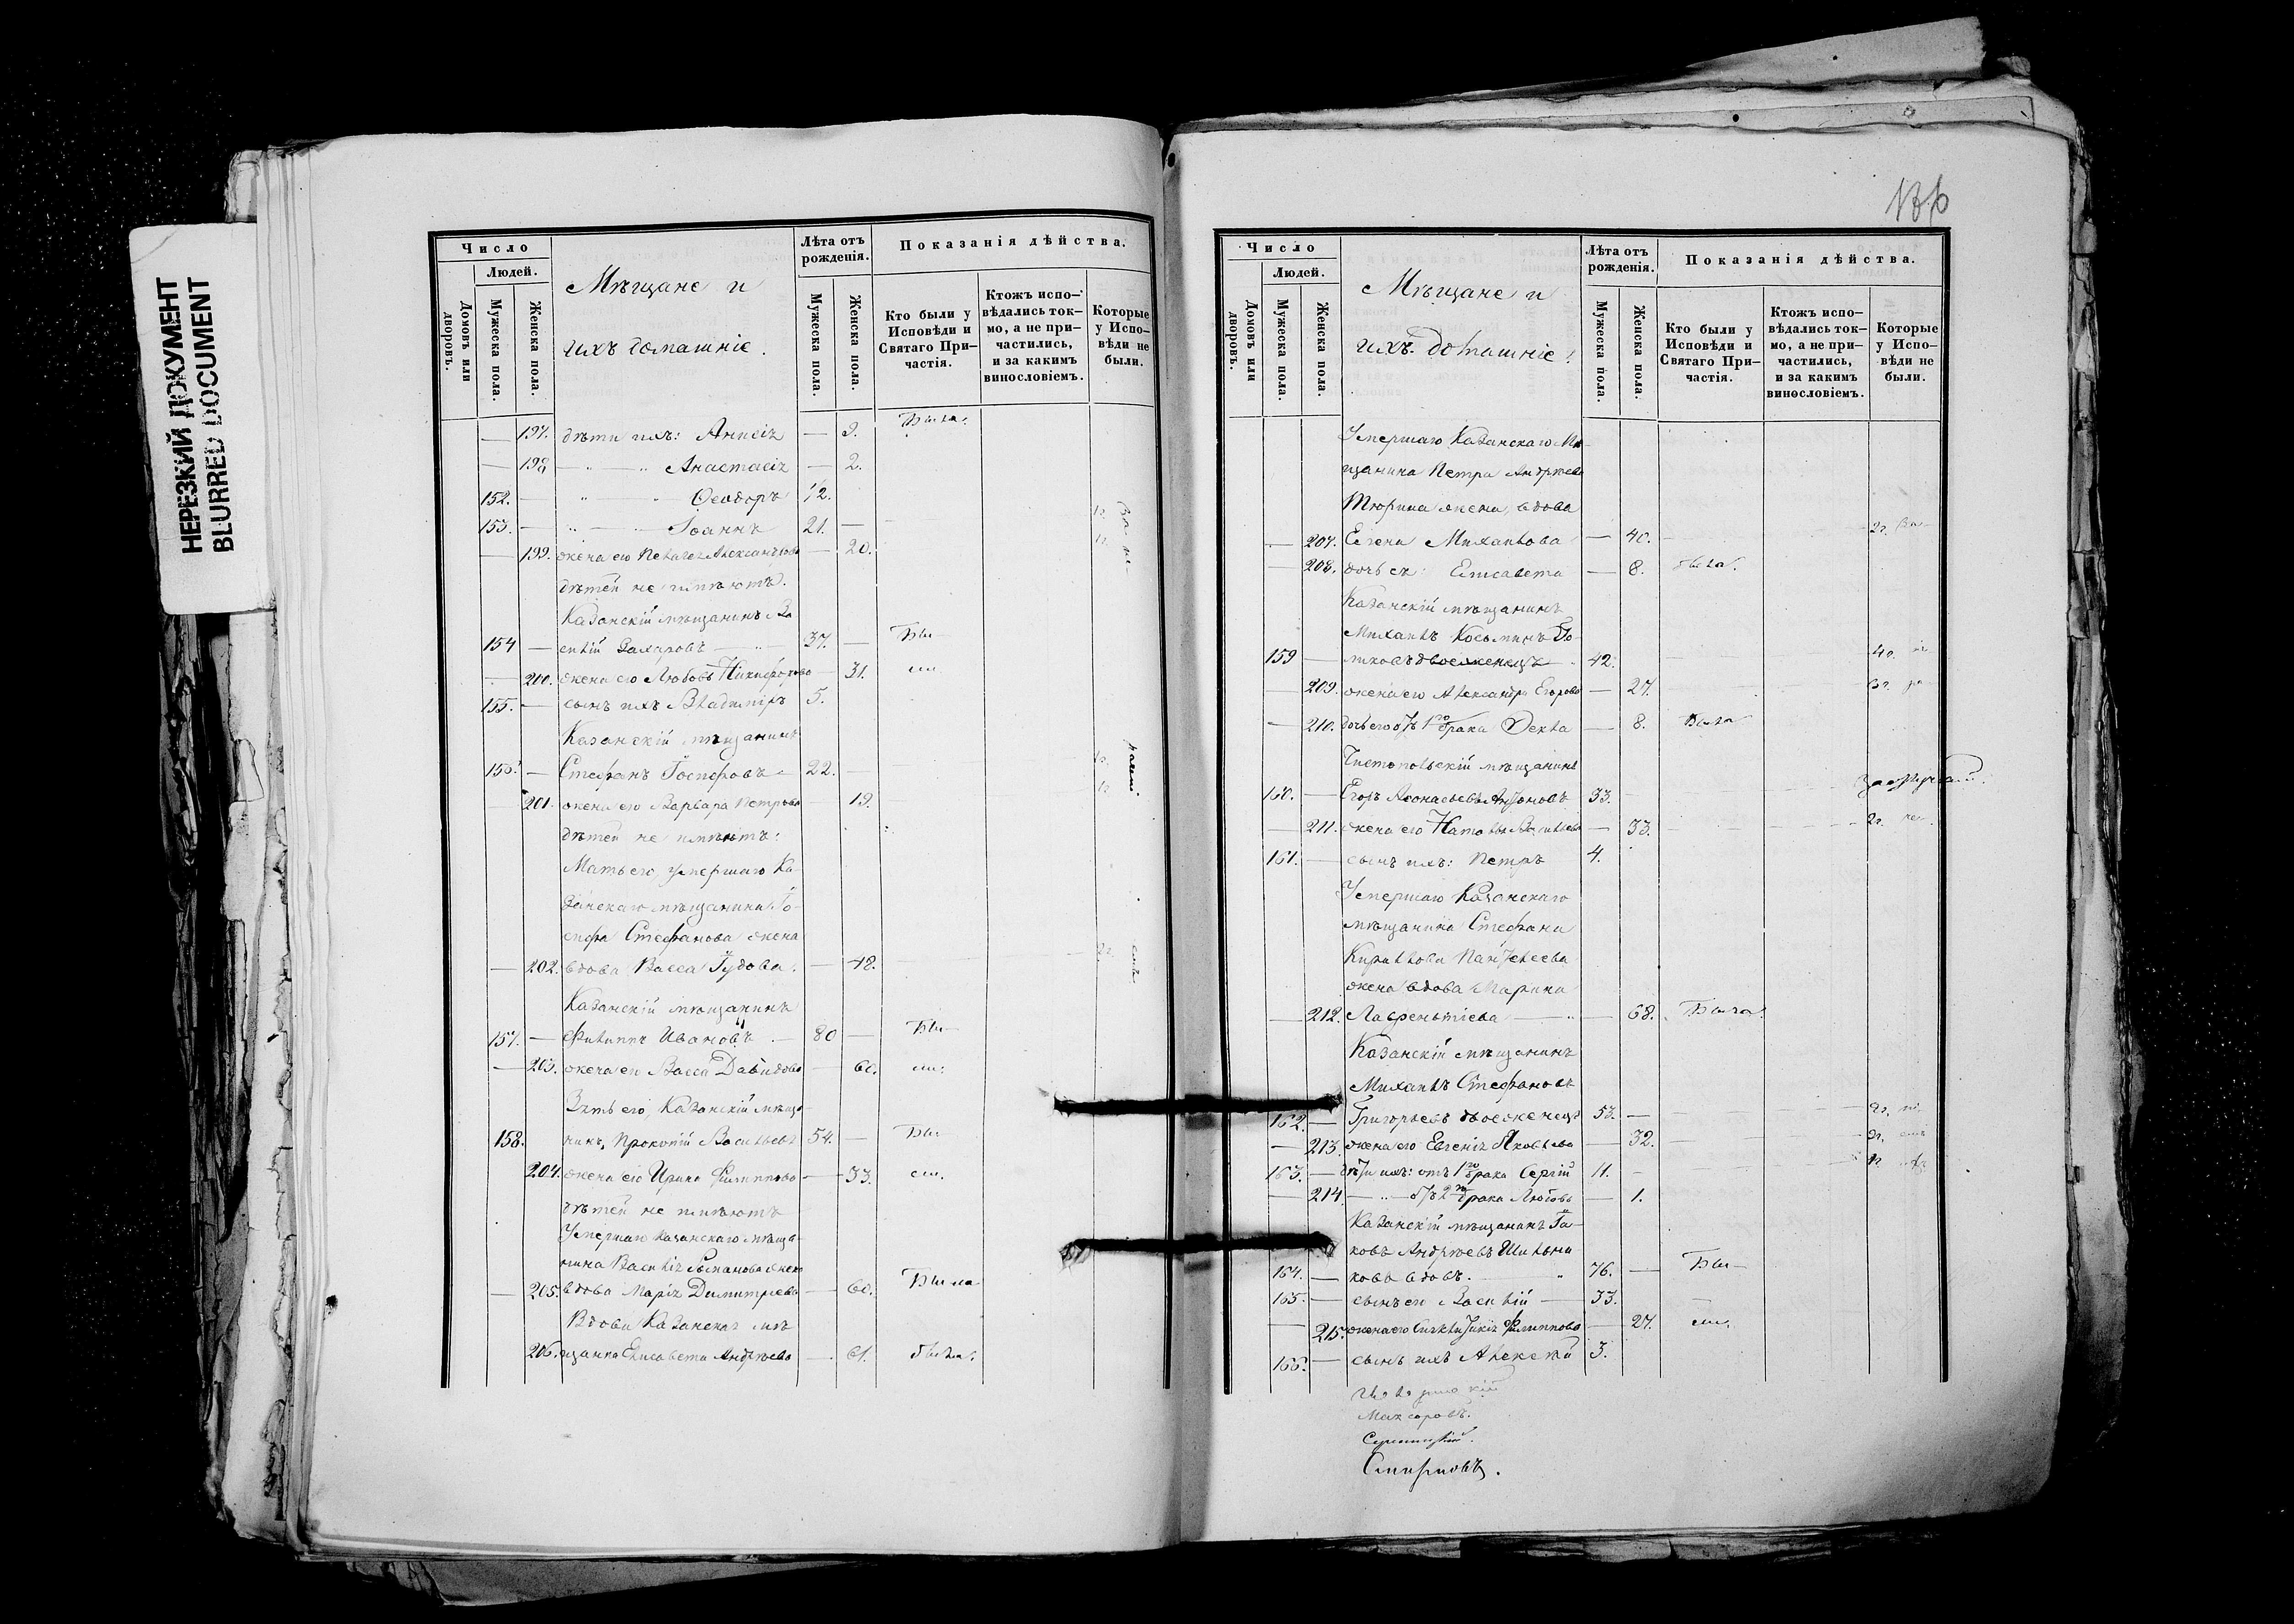 НЕРЕЗКИЙ ДОКУМЕНТ
BLURRED DOCUMENT
Число
Людей.
Домовъ или дворовъ.
Мужеска пола.
Женска пола.
Мѣщане и
ихъ домашніе.
Лѣта отъ рожденія.
Мужеска пола.
Женска пола.
Показанія дѣйства.
Кто были у Исповѣди и Святаго Причастія.
Ктожъ исповѣдались токмо, а не причастились, и за какимъ винословіемъ.
Которые у Исповѣди не были.
— 197. дѣти ихъ: Анисія — 9. Была.
— 198 — „ — „ Анастасія — 2.
152. — „ — Ѳеодоръ 12.
153. — „ — Іоаннъ 21. —
— 199. жена его Пелагея Александрова — 20.
дѣтей не имѣютъ.
Казанскій мѣщанинъ Ва
154 — силій Захаровъ — „ — 37. — Бы—
— 200. жена его Любовь Никифорова — 31. ли
155. — сынъ ихъ Владиміръ 5.
Казанскій мѣщанинъ
156. — Стефанъ Іосифовъ — 22. —
— 201. жена его Варвара Петрова — 19.
дѣтей не имѣютъ:
Мать его, умершаго Ка-
занскаго мѣщанина Іо-
сифа Стефанова жена
— 202. вдова Васса Іудова. — 48.
Казанскій мѣщанинъ
157. — Филиппъ Ивановъ — 80 — Бы—
— 203. жена его Васса Давидова — 60. ли.
Зять его, Казанскій мѣща-
158. нинъ, Прокопій Васильевъ 54. — Бы
204. жена его Ирина Филиппова — 33. ли.
дѣтей не имѣютъ
Умершаго Казанскаго мѣща-
нина Василія Романова жена
— 205. вдова Марія Димитріева — 60. Была
Вдова Казанская мѣ
206. щанка Елисавета Андреева — 61. была.
136
Число
Людей.
Домовъ или дворовъ.
Мужеска пола.
Женска пола.
Мѣщане и
ихъ домашніе.
Лѣта отъ рожденія.
Мужеска пола.
Женска пола.
Показанія дѣйства.
Кто были у Исповѣди и Святаго Причастія.
Ктожъ исповѣдались токмо, а не причастились, и за какимъ винословіемъ.
Которые у Исповѣди не были.
Умершаго Казанскаго Мѣ-
щанина Петра Андреева
Тюрина жена, вдова
— 207. Елена Михайлова — 40. — 2г.
— 208. дочь ея Елисавета — 8. была.
Казанскій мѣщанинъ
Михаилъ Косьминъ
159 — двоеженецъ 42.
— 209. жена его Александра Егорова — 27.
— 210. дочь его отъ 1го брака Ѳекла — 8. Была
Чистопольскій мѣщанинъ
160. — Егоръ Аѳонасьевъ Антоновъ 33. —
— 211. жена его Наталья Васильева — 33. — 2г.
161. — сынъ ихъ: Петръ 4.
Умершаго Казанскаго
мѣщанина Стефана
Кирилова Пантелеева
жена вдова Марина
— 212. Лаврентіева — „ — 68. Была.
Казанскій мѣщанинъ
Михаилъ Стефановъ
162. — Григорьевъ двоеженецъ 53. — 2г.
— 213. жена его Евгенія Яковлева — 32. — 2г.
163. — дѣти ихъ: отъ 1го брака Сергій 11. —
— 214 — „ — отъ 2го брака Любовь — 1.
Казанскій мѣщанинъ Іа-
ковъ Андреевъ Шильни
164. — ковъ вдовъ. — „ 76. — Бы—
165. — сынъ его Василій — 33. —
— 215. жена его Синклитикія Филиппова — 27. ли.
166. — сынъ ихъ Алексѣй 3.
Смирновъ.